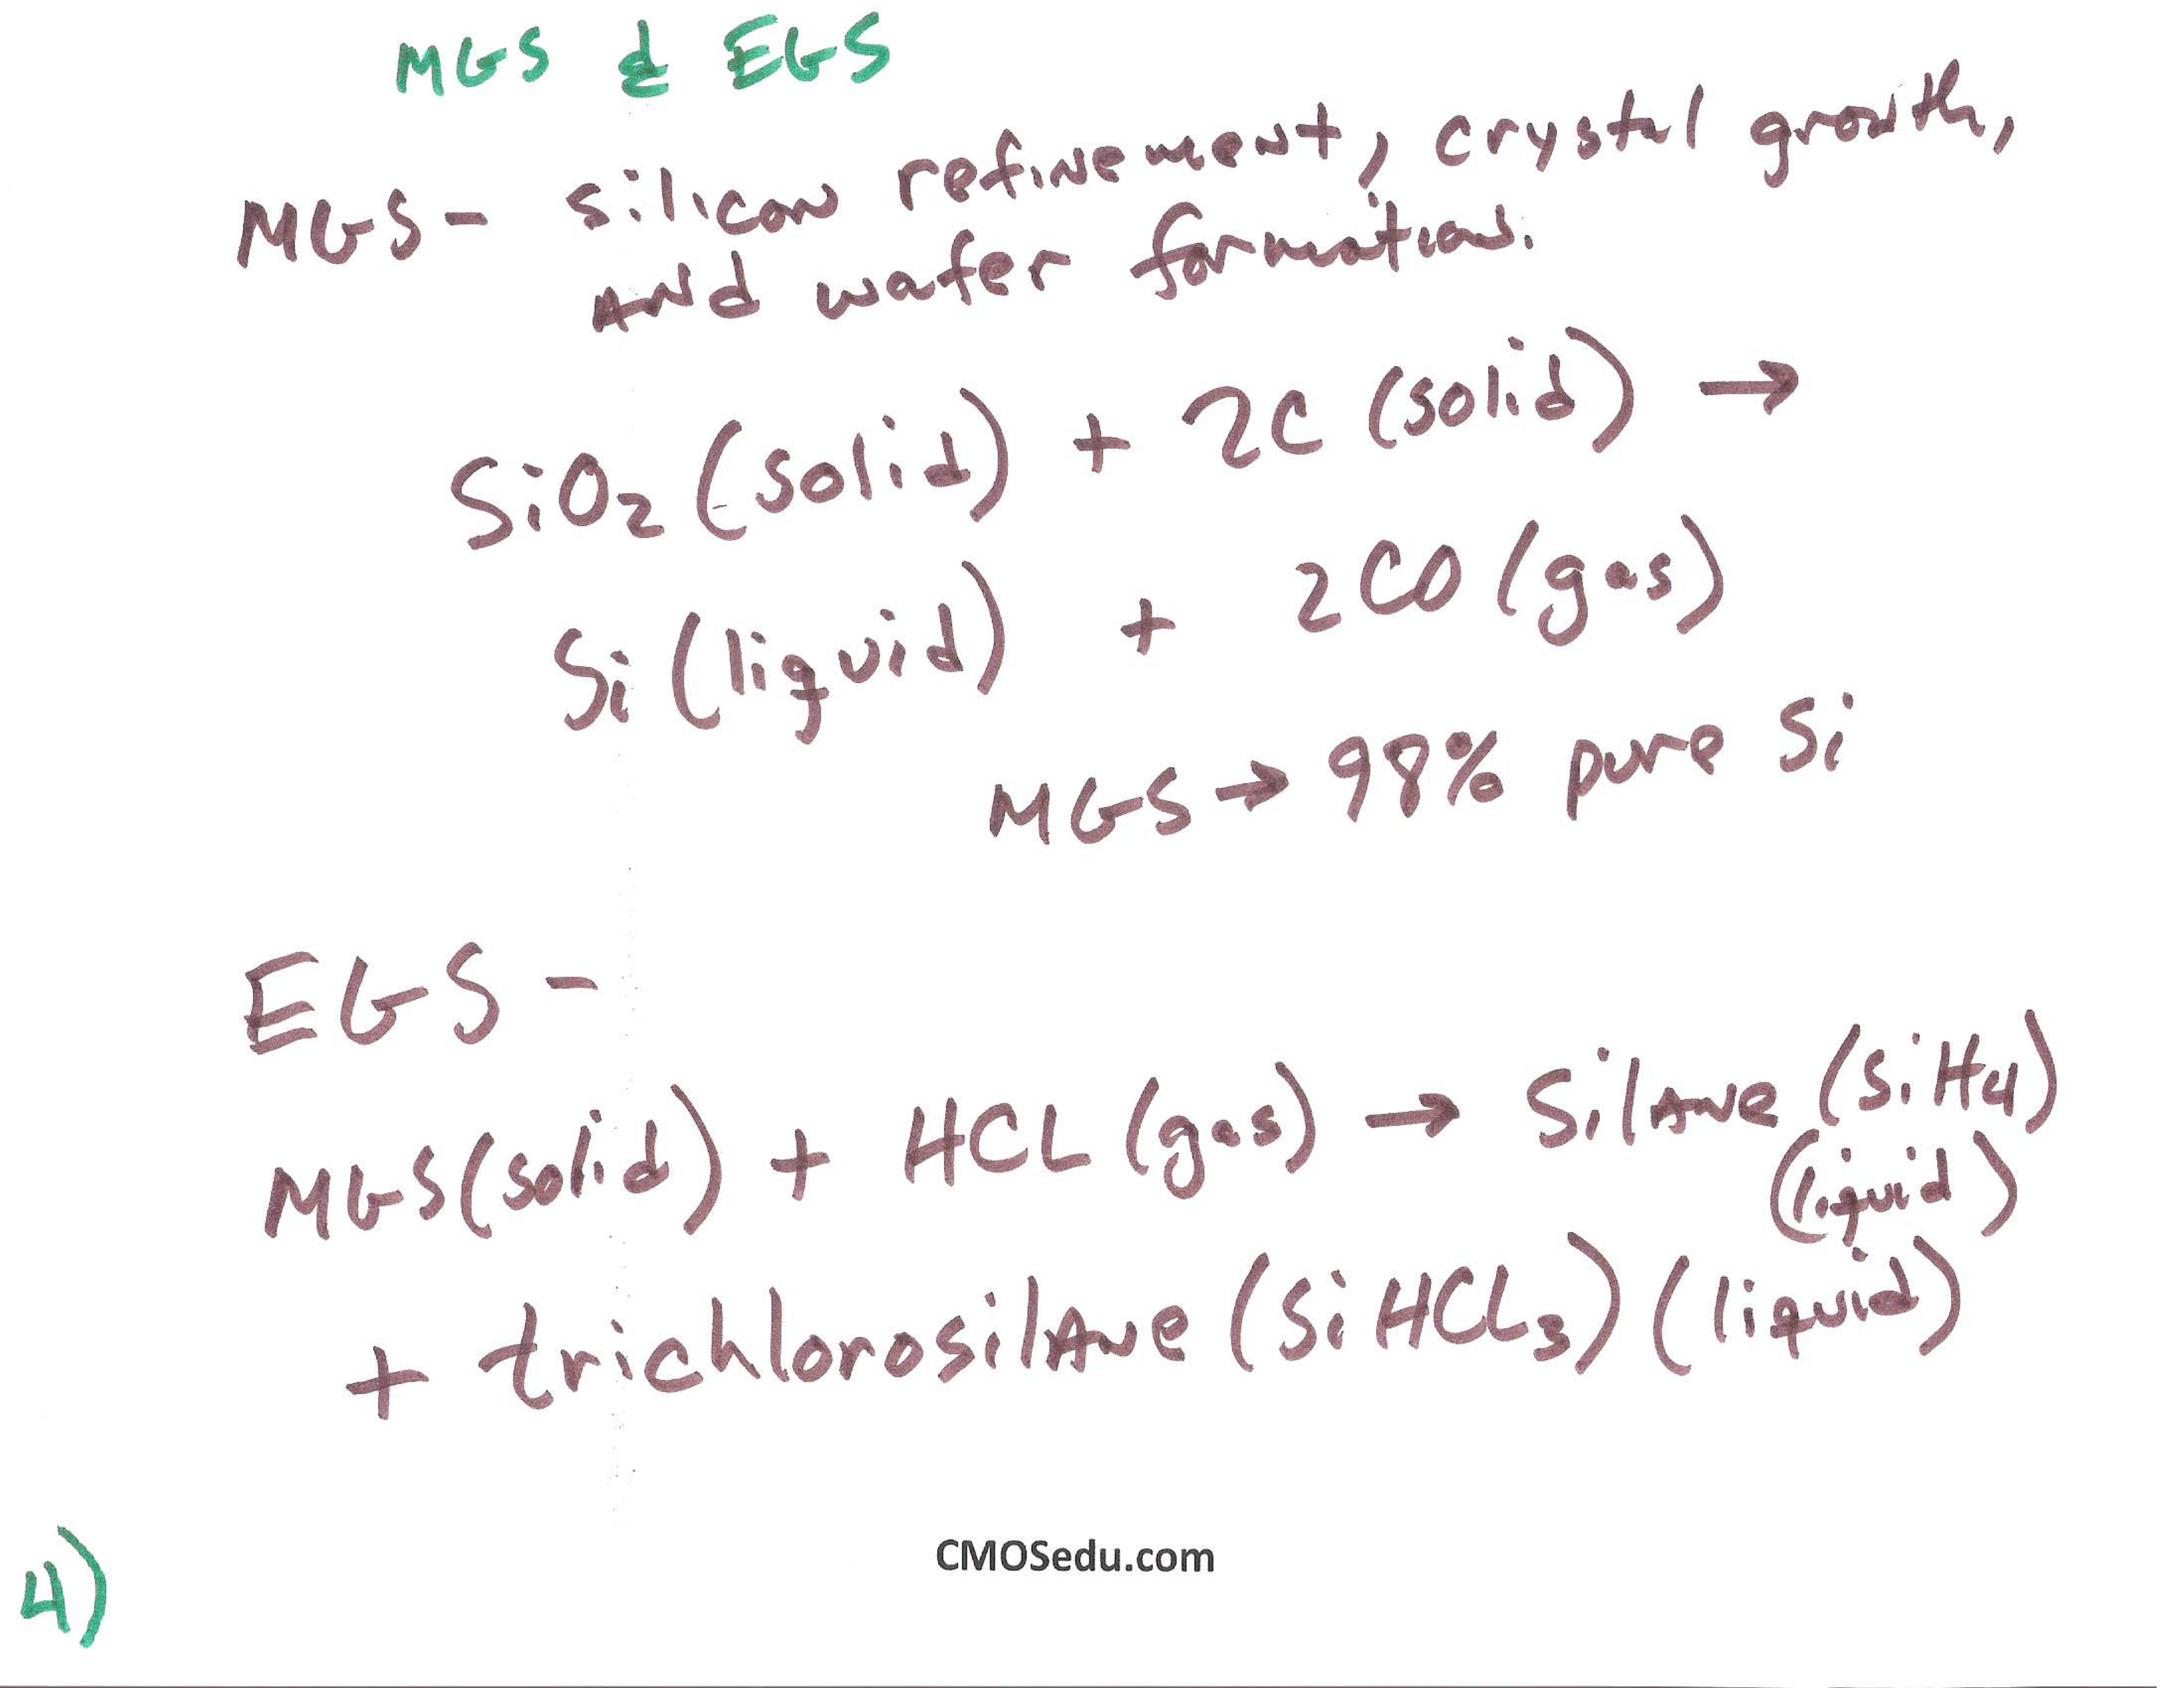 MGS & EGS
MGS - silicon refinement, crystal growth,
and wafer formation.
SiO2 (solid) + 2C (solid) →
Si (liquid) + 2CO (gas)
MGS → 98% pure Si
EGS -
MGS (solid) + HCL (gas) → Silane (SiH4)
(liquid)
+ trichlorosilane (SiHCL3) (liquid)
CMOSedu.com
4)